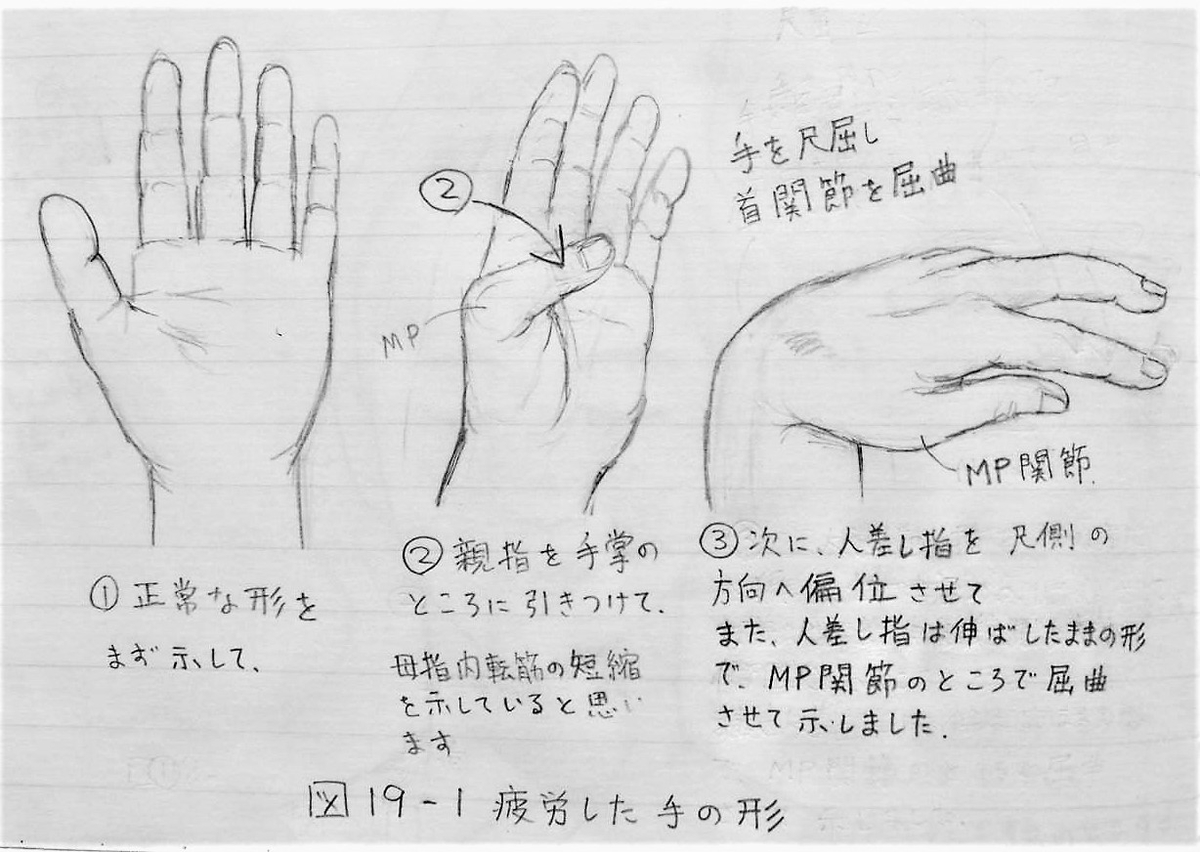 手を尺屈し
首関節を屈曲
②
MP
MP関節
①正常な形を
まず示して、
②親指を手掌の
ところに引きつけて、
母指内転筋の短縮
を示していると思い
ます
③次に、人差し指を尺側の
方向へ偏位させて
また、人差し指は伸ばしたままの形
で、MP関節のところで屈曲
させて示しました.
図19-1 疲労した手の形